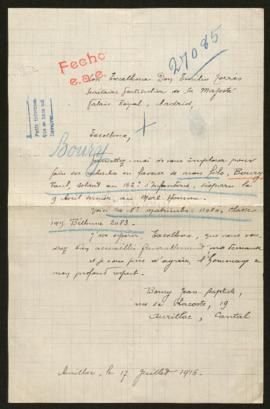 27085
Fecho
e.a.e.
Son Excellence Don Emilio Torrès
Secrétaire Particulier de Sa Majesté
Palais Royal, Madrid,
Excellence,
Boury
Permettez-moi de vous implorer pour
faire des recherches en faveur de mon fils, Boury
Paul, soldat au 162e d'infanterie, disparu le
9 Avril dernier, au Mort Homme.
Voici no Rt matricule 11080, classe
1915 Béthune 2083.
J'ose espérer Excellence, que vous vou-
drez bien accueillir favorablement ma demande
et je vous prie d'agréer, l'hommage de
mon profond respect.
Boury Jean-Baptiste,
rue de Lacoste, 19
Aurillac, Cantal
Aurillac, le 17 Juillet 1916.